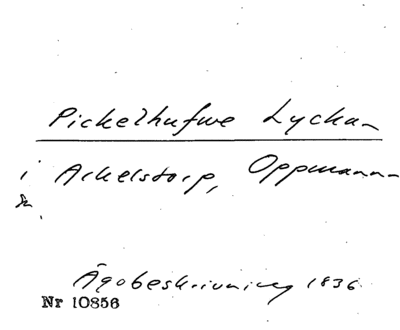 Pickelhufwe Lyckan
i Ackelstorp, Oppmanna
sn.
Ägobeskrivning 1836
Nr 10856